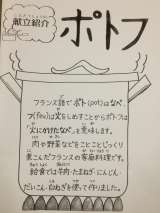 献立紹介
ポトフ
フランス語でポト(pot)はなべ、
フ(feu)は火をしめすことからポトフは
「火にかけたなべ」を意味します。
肉や野菜などをことことじっくり
煮こんだフランスの家庭料理です。
給食では牛肉・たまねぎ・にんじん・
だいこん・白ねぎを使って作りました。